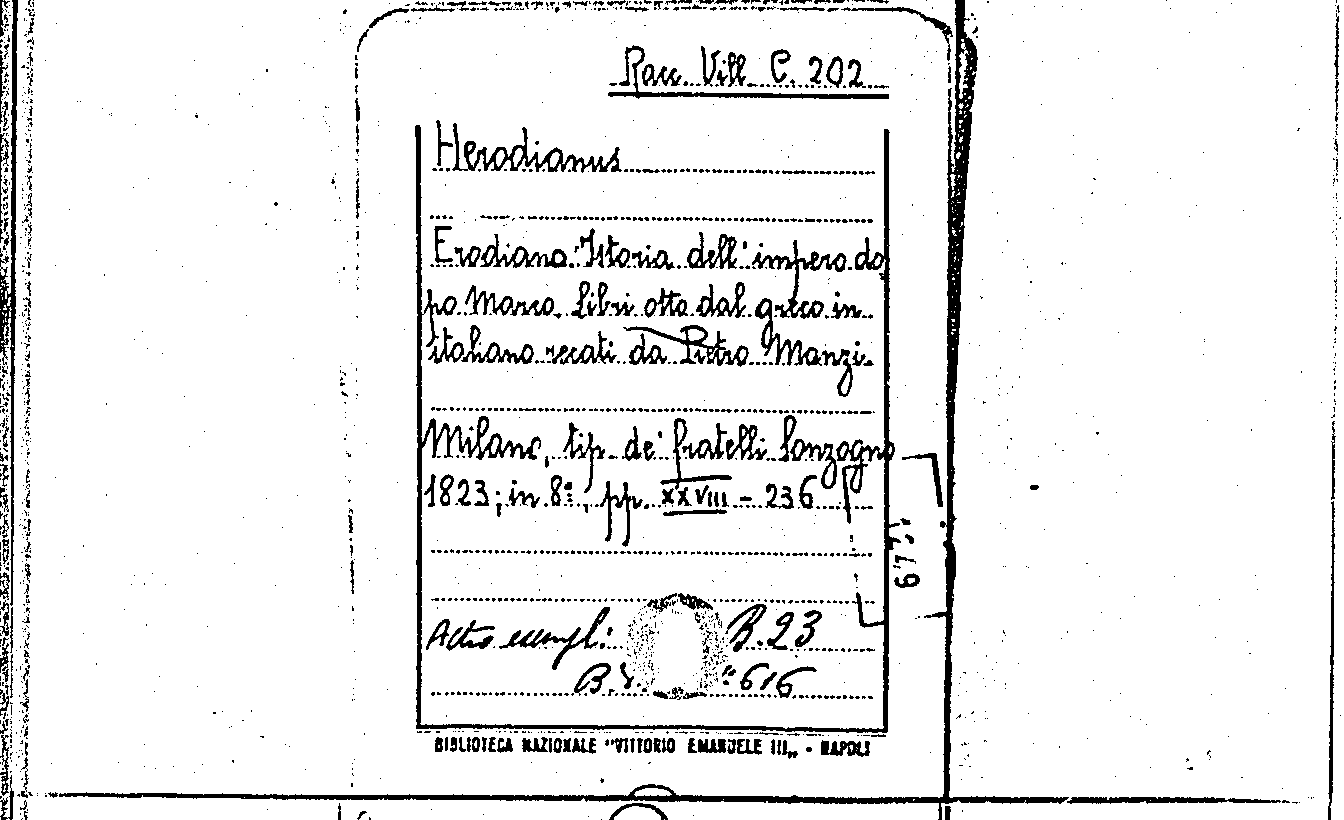 Racc. Vill. C. 202
Herodianus
Erodiano. Istoria dell'impero do
po Marco. Libri otto dal greco in
italiano recati da Pietro Manzi.
Milano, tip. de' fratelli Sonzogno
1823; in 8º, pp. XXVIII - 236
Altro esempl: B.23
616
BIBLIOTECA NAZIONALE "VITTORIO EMANUELE III„ - NAPOLI